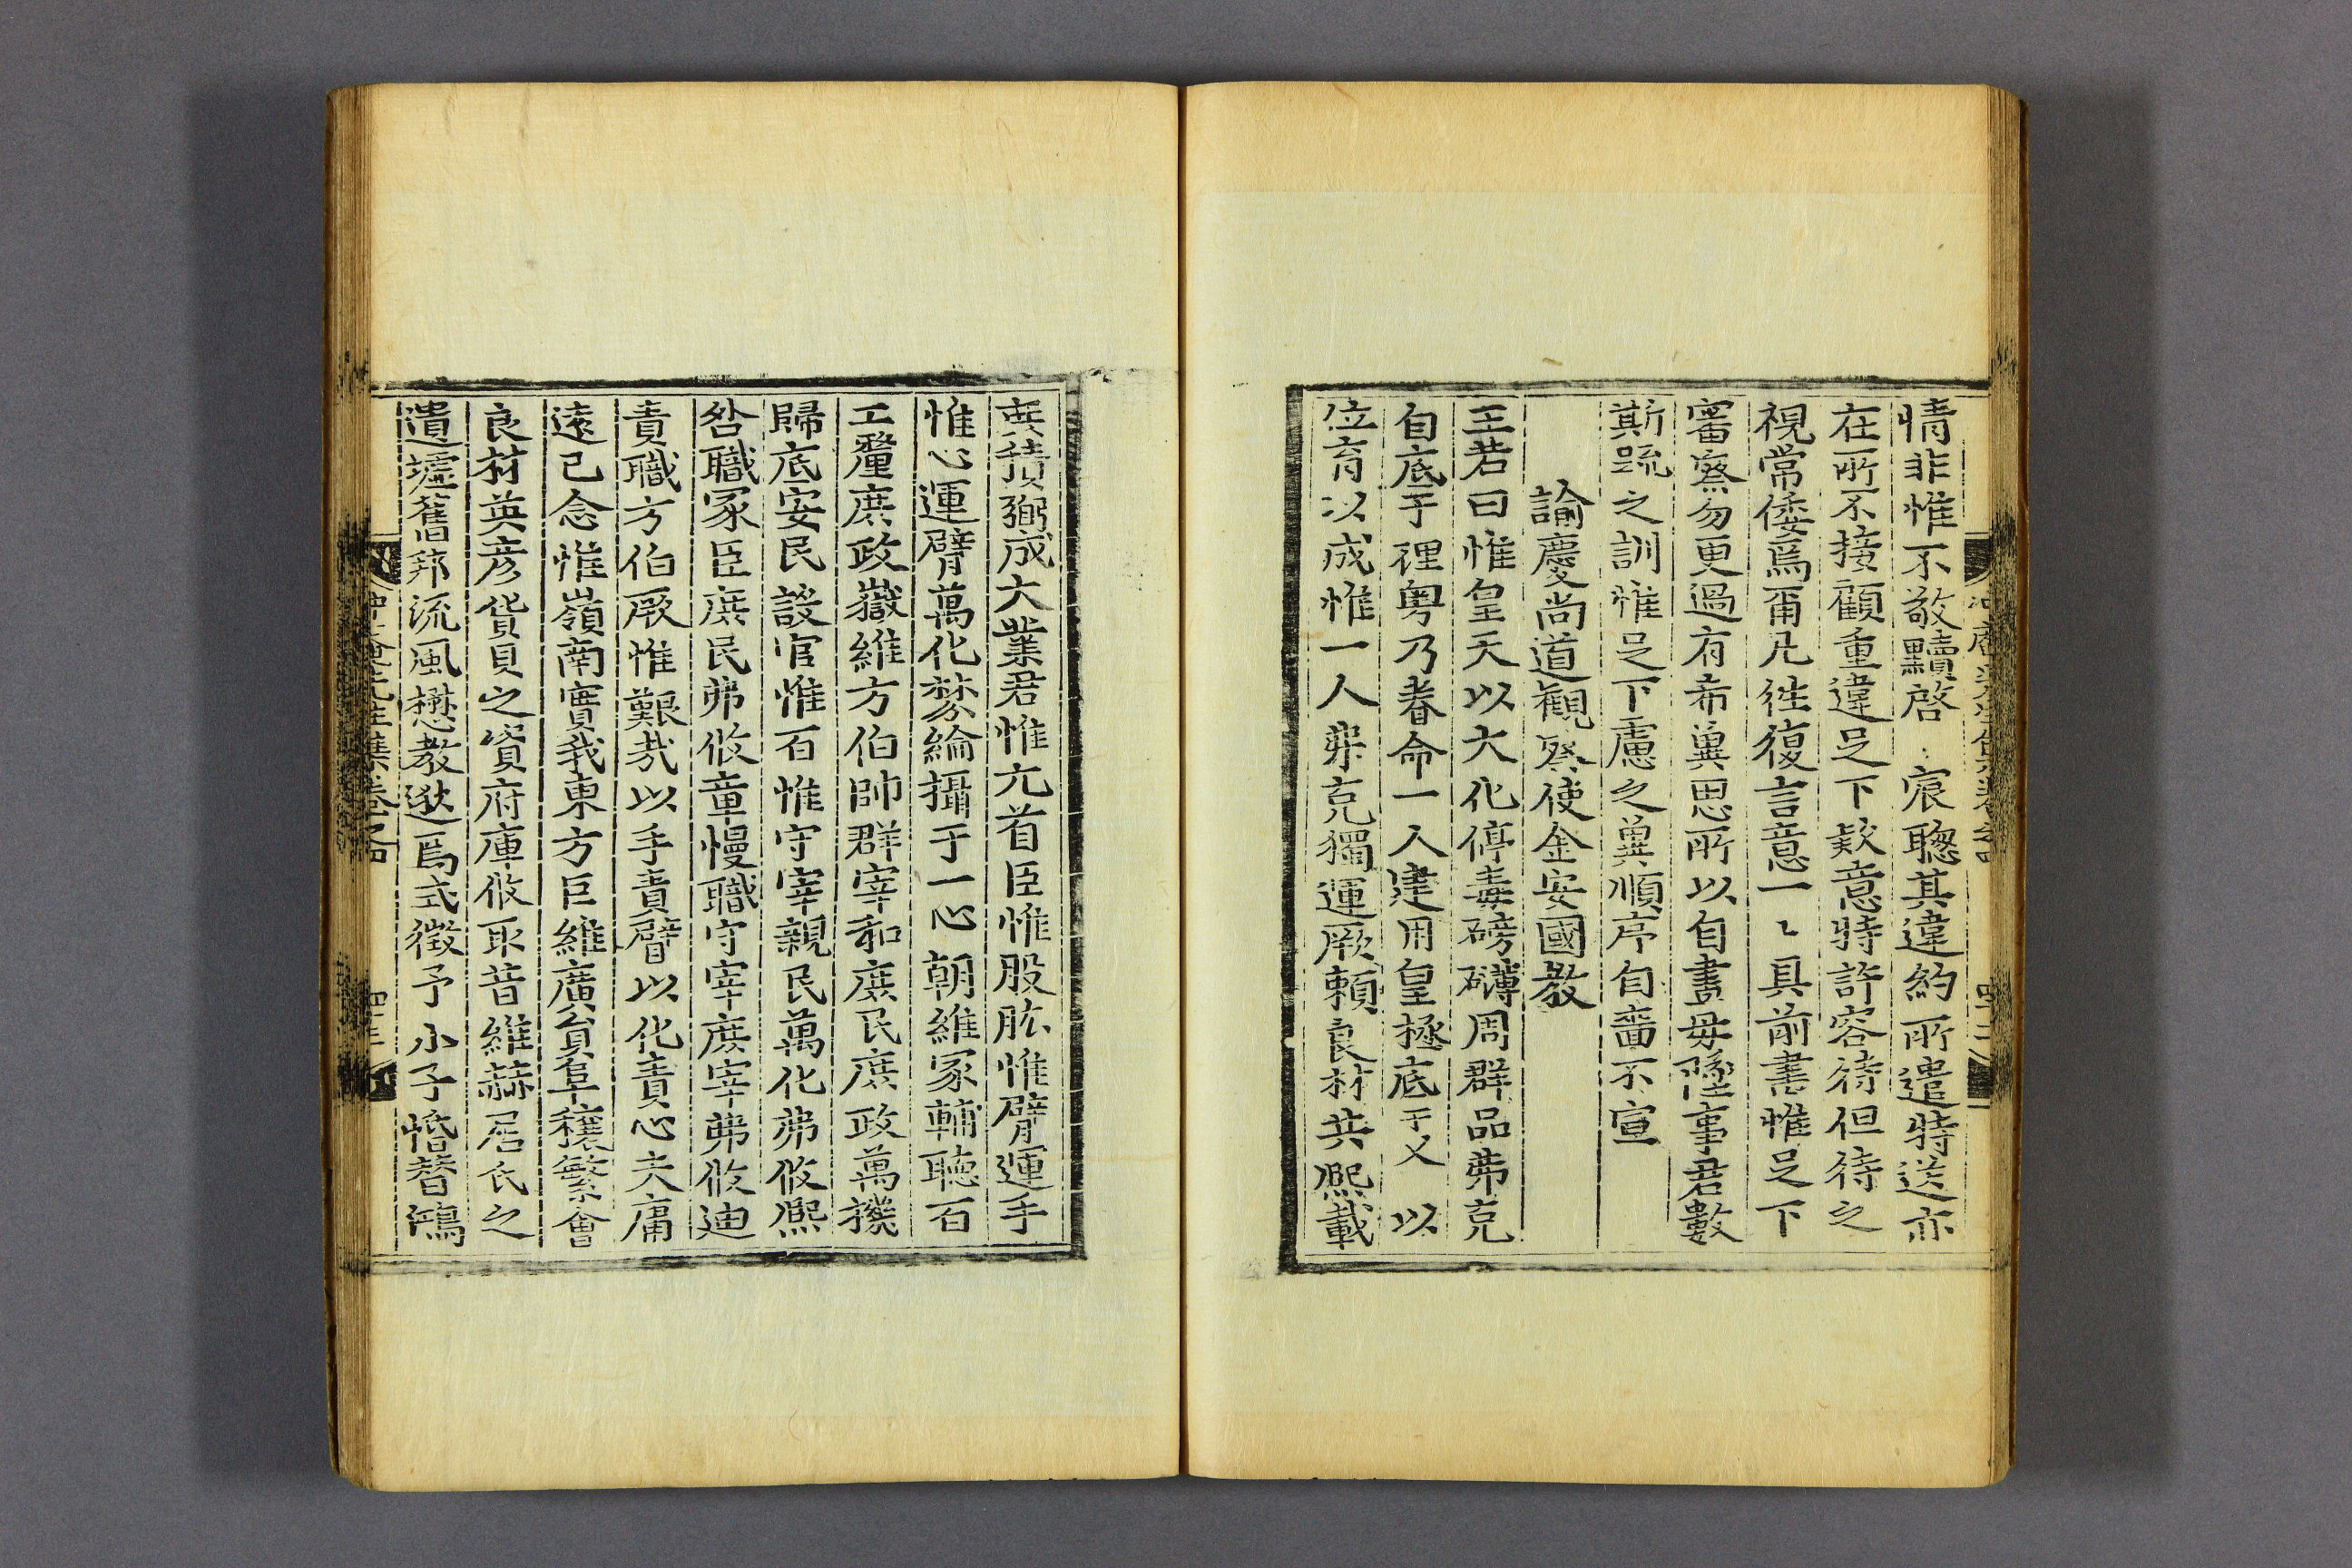 情非惟不敬黷啓 宸聰其違約所遣特送亦
在所不接顧重違足下欵意特許容待但待之
視常倭爲甭凡往復言意一〻具前書惟足下
審察勿更過有希兾思所以自盡毋墜事君數
斯䟽之訓惟足下慮之兾順序自嗇不宣
諭慶尚道觀察使金安國教
王若曰惟皇天以大化停毒磅礴周群品弗克
自底于理粤乃眷命一人建用皇極底于乂以
位育以成惟一人弗克獨運厥賴良材共熈載
庶績弼成大業君惟元首臣惟股肱惟臂運手
惟心運臂萬化棼綸攝于一心朝維冢輔聽百
工釐庶政嶽維方伯帥群宰和庶民庶政萬機
歸底安民設官惟百惟守宰親民萬化弗攸熈
咎職冢臣庶民弗攸童慢職守宰庶宰弗攸迪
責職方伯厥惟艱㢤以手責臂以化責心夫庸
遠已念惟嶺南實我東方巨維廣貟阜穰繁會
良材英彦貨貝之資府庫攸取昔維赫居氏之
遺墟舊邦流風懋教逖爲式徵予小子惛替鴻